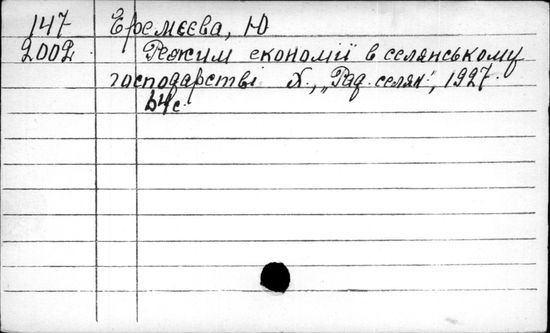 147 Еремєєва, Ю
2002 Режим економії в селянському
господарстві Х., „Рад. селян", 1927.
64 с.